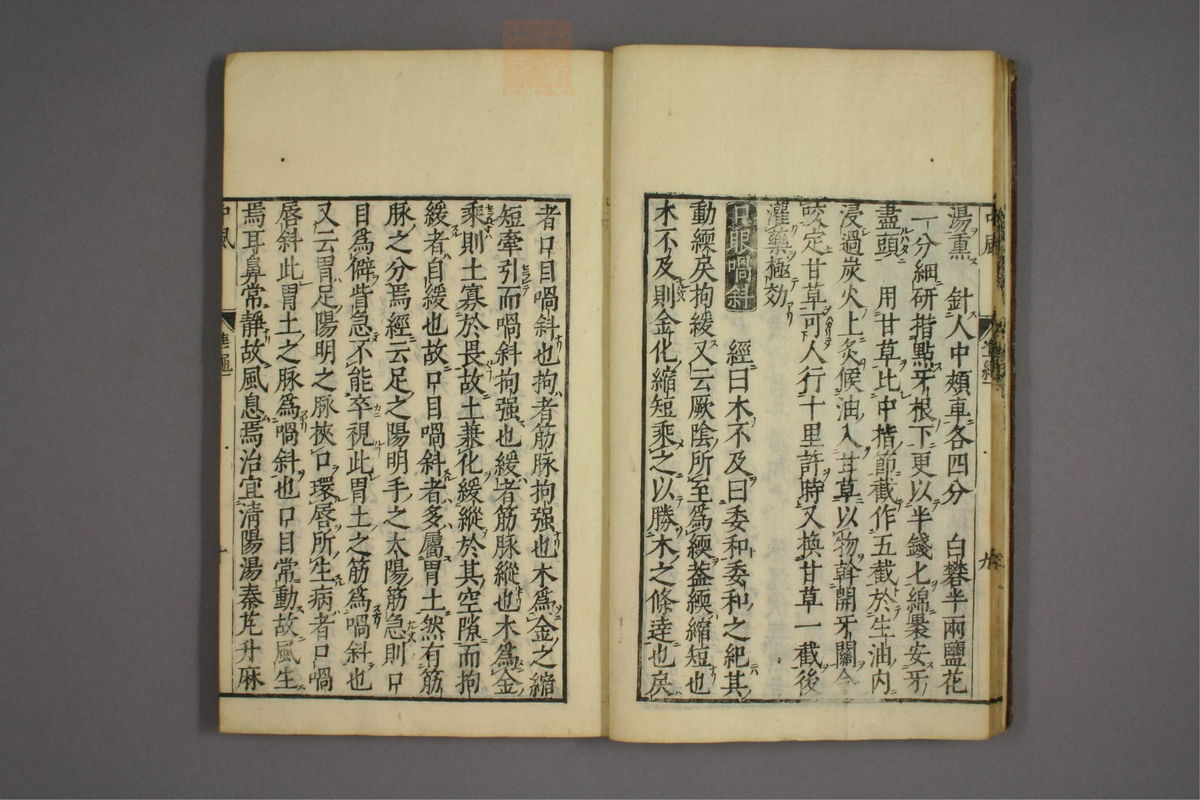 湯熏　針人中頰車各四分　白礬半兩鹽花
一分細研揩點牙根下更以半錢匕綿裹安牙
盡頭　用甘草比中指節截作五截於生油內
浸過炭火上炙候油入甘草以物斡開牙關令
咬定甘草可人行十里許時又換甘草一截後
灌藥極効
口眼喎斜　經曰木不及曰委和委和之紀其
動緛戾拘緩又云厥陰所至爲緛蓋緛縮短也
木不及則金化縮短乘之以勝木之條達也戾
者口目喎斜也拘者筋脉拘强也木爲金之縮
短牽引而喎斜拘强也緩者筋脉縱也木爲金
乘則土寡於畏故土兼化緩縱於其空隙而拘
緩者自緩也故口目喎斜者多屬胃土然有筋
脉之分焉經云足之陽明手之太陽筋急則口
目爲僻眥急不能卒視此胃土之筋爲喎斜也
又云胃足陽明之脉挾口環唇所生病者口喎
唇斜此胃土之脉爲喎斜也口目常動故風生
焉耳鼻常靜故風息焉治宜淸陽湯秦艽升麻
中風